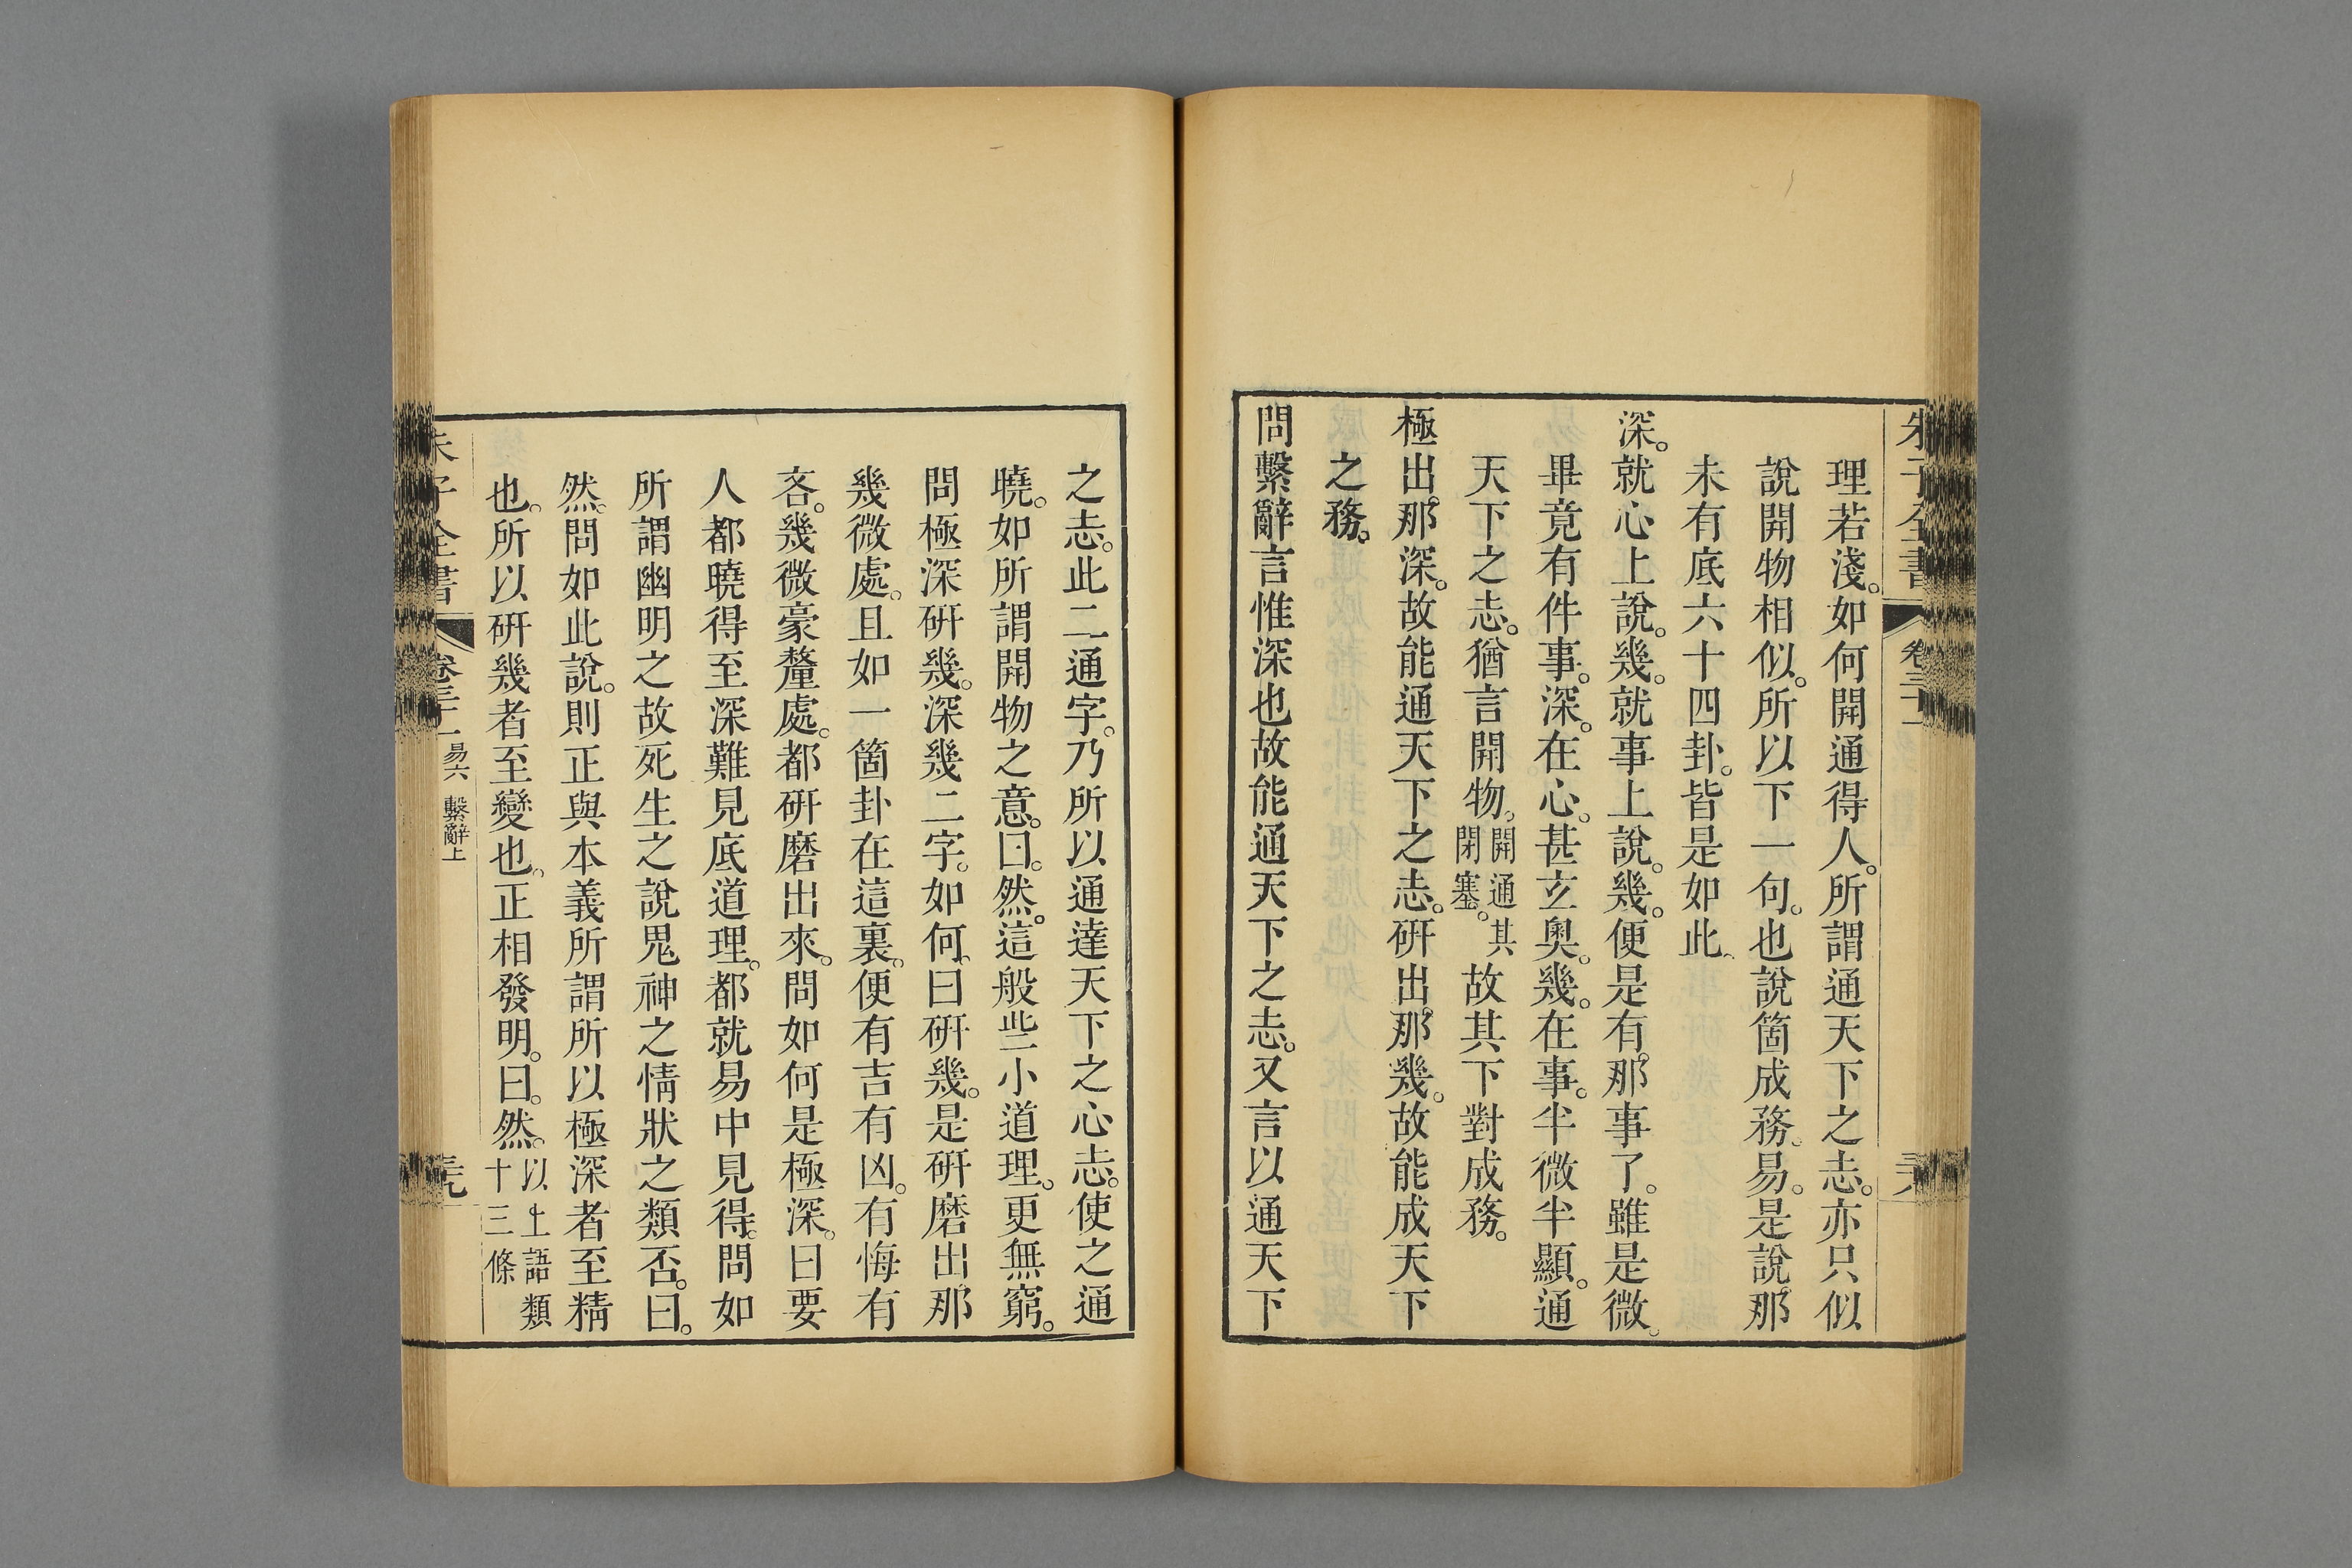 朱子全書 卷三十一
理若淺。如何開通得人。所謂通天下之志。亦只似
說開物相似。所以下一句。也說箇成務。易。是說那
未有底六十四卦。皆是如此。
深。就心上說。幾。就事上說。幾。便是有那事了。雖是微。
畢竟有件事。深。在心。甚玄奧。幾。在事。半微半顯。通
天下之志。猶言開物。開通其閉塞。故其下對成務。
極出那深。故能通天下之志。硏出那幾。故能成天下
之務。
問繫辭言惟深也故能通天下之志。又言以通天下
之志。此二通字。乃所以通達天下之心志。使之通
曉。如所謂開物之意。曰。然。這般些小道理。更無窮。
問極深硏幾。深幾二字。如何。曰硏幾。是硏磨出那
幾微處。且如一箇卦在這裏。便有吉有凶。有悔有
吝。幾微豪釐處。都硏磨出來。問如何是極深。曰要
人都曉得至深難見底道理。都就易中見得。問如
所謂幽明之故死生之說鬼神之情狀之類否。曰。
然。問如此說。則正與本義所謂所以極深者至精
也。所以硏幾者至變也。正相發明。曰。然。以上語類十三條
朱子全書 卷三十一 易六 繫辭上 三九